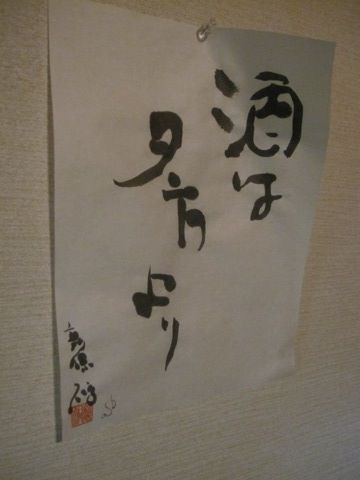 酒は
夕方より